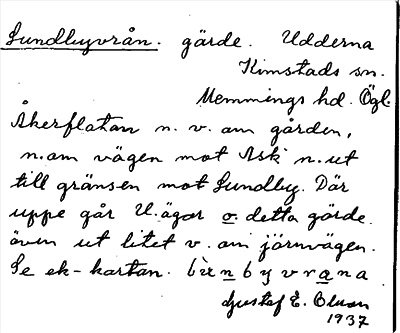 Sundbyvrån. gärde. Udderna
Kimstads sn.
Memmings hd. Ögl.
Åkerflatan n. v. om gården,
n. om vägen mot Ask n. ut
till gränsen mot Sundby. Där
uppe går U:ägor o. detta gärde
även ut litet v. om järnvägen.
Se ek-kartan.
Gustaf E. Olson
1937